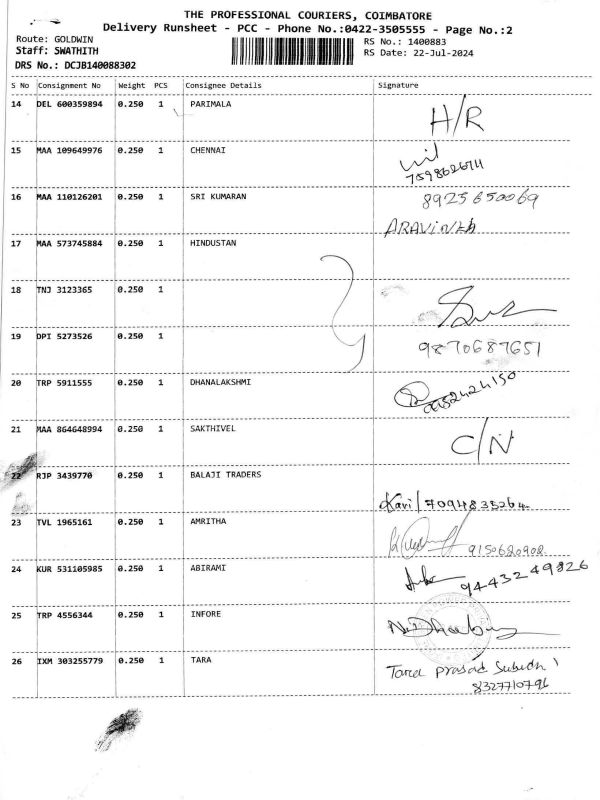 THE PROFESSIONAL COURIERS, COIMBATORE
Delivery Runsheet - PCC - Phone No.:0422-3505555 - Page No.:2
Route: GOLDWIN
RS No.: 1400883
Staff: SWATHITH
RS Date: 22-Jul-2024
DRS No.: DCJB140088302
S No Consignment No Weight PCS Consignee Details Signature
14 DEL 600359894 0.250 1 PARIMALA H/R
15 MAA 109649976 0.250 1 CHENNAI
16 MAA 110126201 0.250 1 SRI KUMARAN 8925650069
ARAVINTH
17 MAA 573745884 0.250 1 HINDUSTAN
18 TNJ 3123365 0.250 1
19 DPI 5273526 0.250 1 9870687651
20 TRP 5911555 0.250 1 DHANALAKSHMI
21 MAA 864648994 0.250 1 SAKTHIVEL C/N
22 RJP 3439770 0.250 1 BALAJI TRADERS
Kavi/7094835264
23 TVL 1965161 0.250 1 AMRITHA
9150620908
24 KUR 531105985 0.250 1 ABIRAMI 9443249826
25 TRP 4556344 0.250 1 INFORE
26 IXM 303255779 0.250 1 TARA Tara Prasad
8327710796